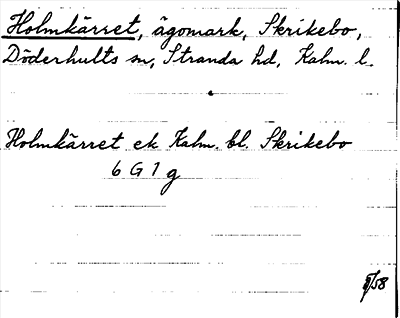 Holmkärret, ägomark, Skrikebo,
Döderhults sn, Stranda hd, Kalm. l.
Holmkärret ek Kalm. bl. Skrikebo
6 G 1 g